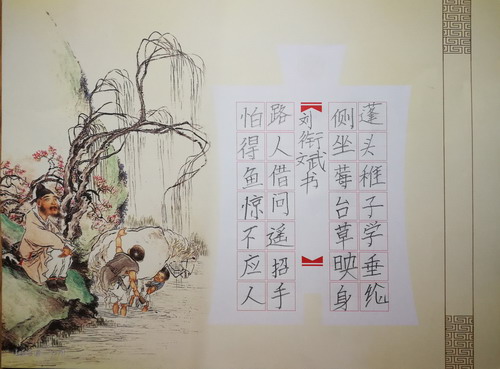 蓬头稚子学垂纶
侧坐莓台草映身
路人借问遥招手
怕得鱼惊不应人
刘 武书